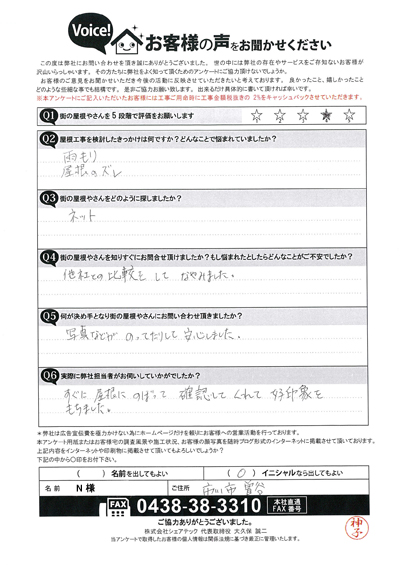 Voice!
お客様の声をお聞かせください
この度は弊社にお問い合わせを頂き誠にありがとうございました。世の中には弊社の存在やサービスをご存知ないお客様が
沢山いらっしゃいます。その方たちに弊社をよく知って頂くためのアンケートにご協力頂けないでしょうか。
お客様のご意見をお聞かせいただき今後の活動に反映させていただきたいと考えております。良かったこと、嬉しかったこと
どのような些細な事でも結構です。是非ご協力お願い致します。出来るだけ具体的に書いて頂ければ幸いです。
※本アンケートにご記入いただいたお客様には工事ご用命時に工事金額税抜きの 2%をキャッシュバックさせていただきます。
Q1 街の屋根やさんを 5 段階で評価をお願いします ☆ ☆ ☆ ★ ☆
Q2 屋根工事を検討したきっかけは何ですか?どんなことで悩まれていましたか?
雨もり
屋根のズレ
Q3 街の屋根やさんをどのように探しましたか?
ネット
Q4 街の屋根やさんを知りすぐにお問合せ頂けましたか?もし悩まれたとしたらどんなことがご不安でしたか?
他社との比較をして なやみました。
Q5 何が決め手となり街の屋根やさんにお問い合わせ頂きましたか?
写真などが のってたりして安心しました。
Q6 実際に弊社担当者がお伺いしていかがでしたか?
すぐに屋根に のぼって 確認して くれて 好印象を
もちました。
*弊社は広告宣伝費を極力かけない為にホームページだけを頼りにお客様への営業活動を行っております。
本アンケート用紙またはお客様宅の調査風景や施工状況、お客様の顔写真を随時ブログ形式のインターネットに掲載させて頂いております。
上記内容をインターネットや印刷物に掲載させて頂いてもよろしいでしょうか?
下記の中から〇印をお付下さい。
( ) 名前を出してもよい ( ○ ) イニシャルなら出してもよい
名前 N 様 ご住所
FAX 0438-38-3310 本社直通 FAX 番号
ご協力ありがとうございました。
株式会社シェアテック 代表取締役 大久保 誠二
当アンケートで取得したお客様の個人情報は関係法規に基づき厳正に管理いたします。
神子